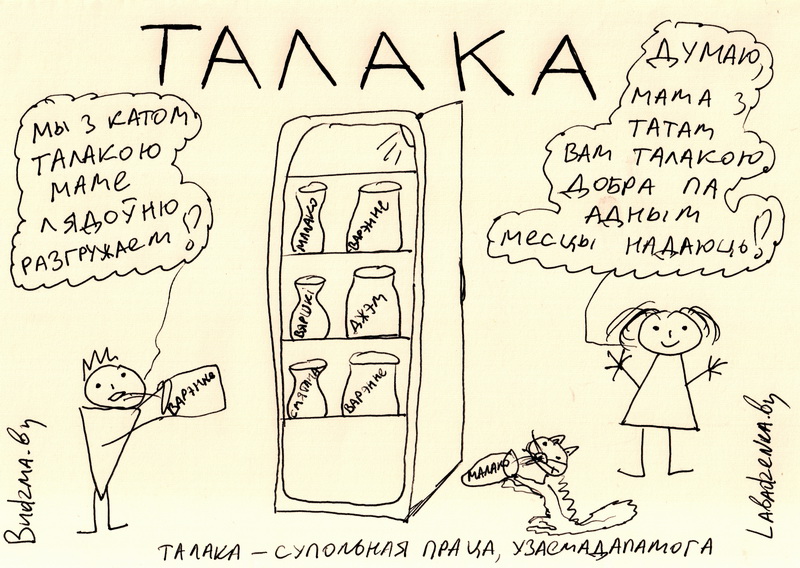 ТАЛАКА
МЫ З КАТОМ
ТАЛАКОЮ
МАМЕ
ЛЯДОЎНЮ
РАЗГРУЖАЕМ!
ДУМАЮ,
МАМА З
ТАТАМ
ВАМ ТАЛАКОЮ
ДОБРА ПА
АДНЫМ
МЕСЦЫ НАДАЮЦЬ!
МАЛАКО
ВАРЭННЕ
ВАРШКІ
ДЖЭМ
СМЯТАНА
ВАРЭННЕ
ВАРЭННЕ
МАЛАКО
Budzma.by
Labadzenka.by
ТАЛАКА – СУПОЛЬНАЯ ПРАЦА, УЗАЕМАДАПАМОГА